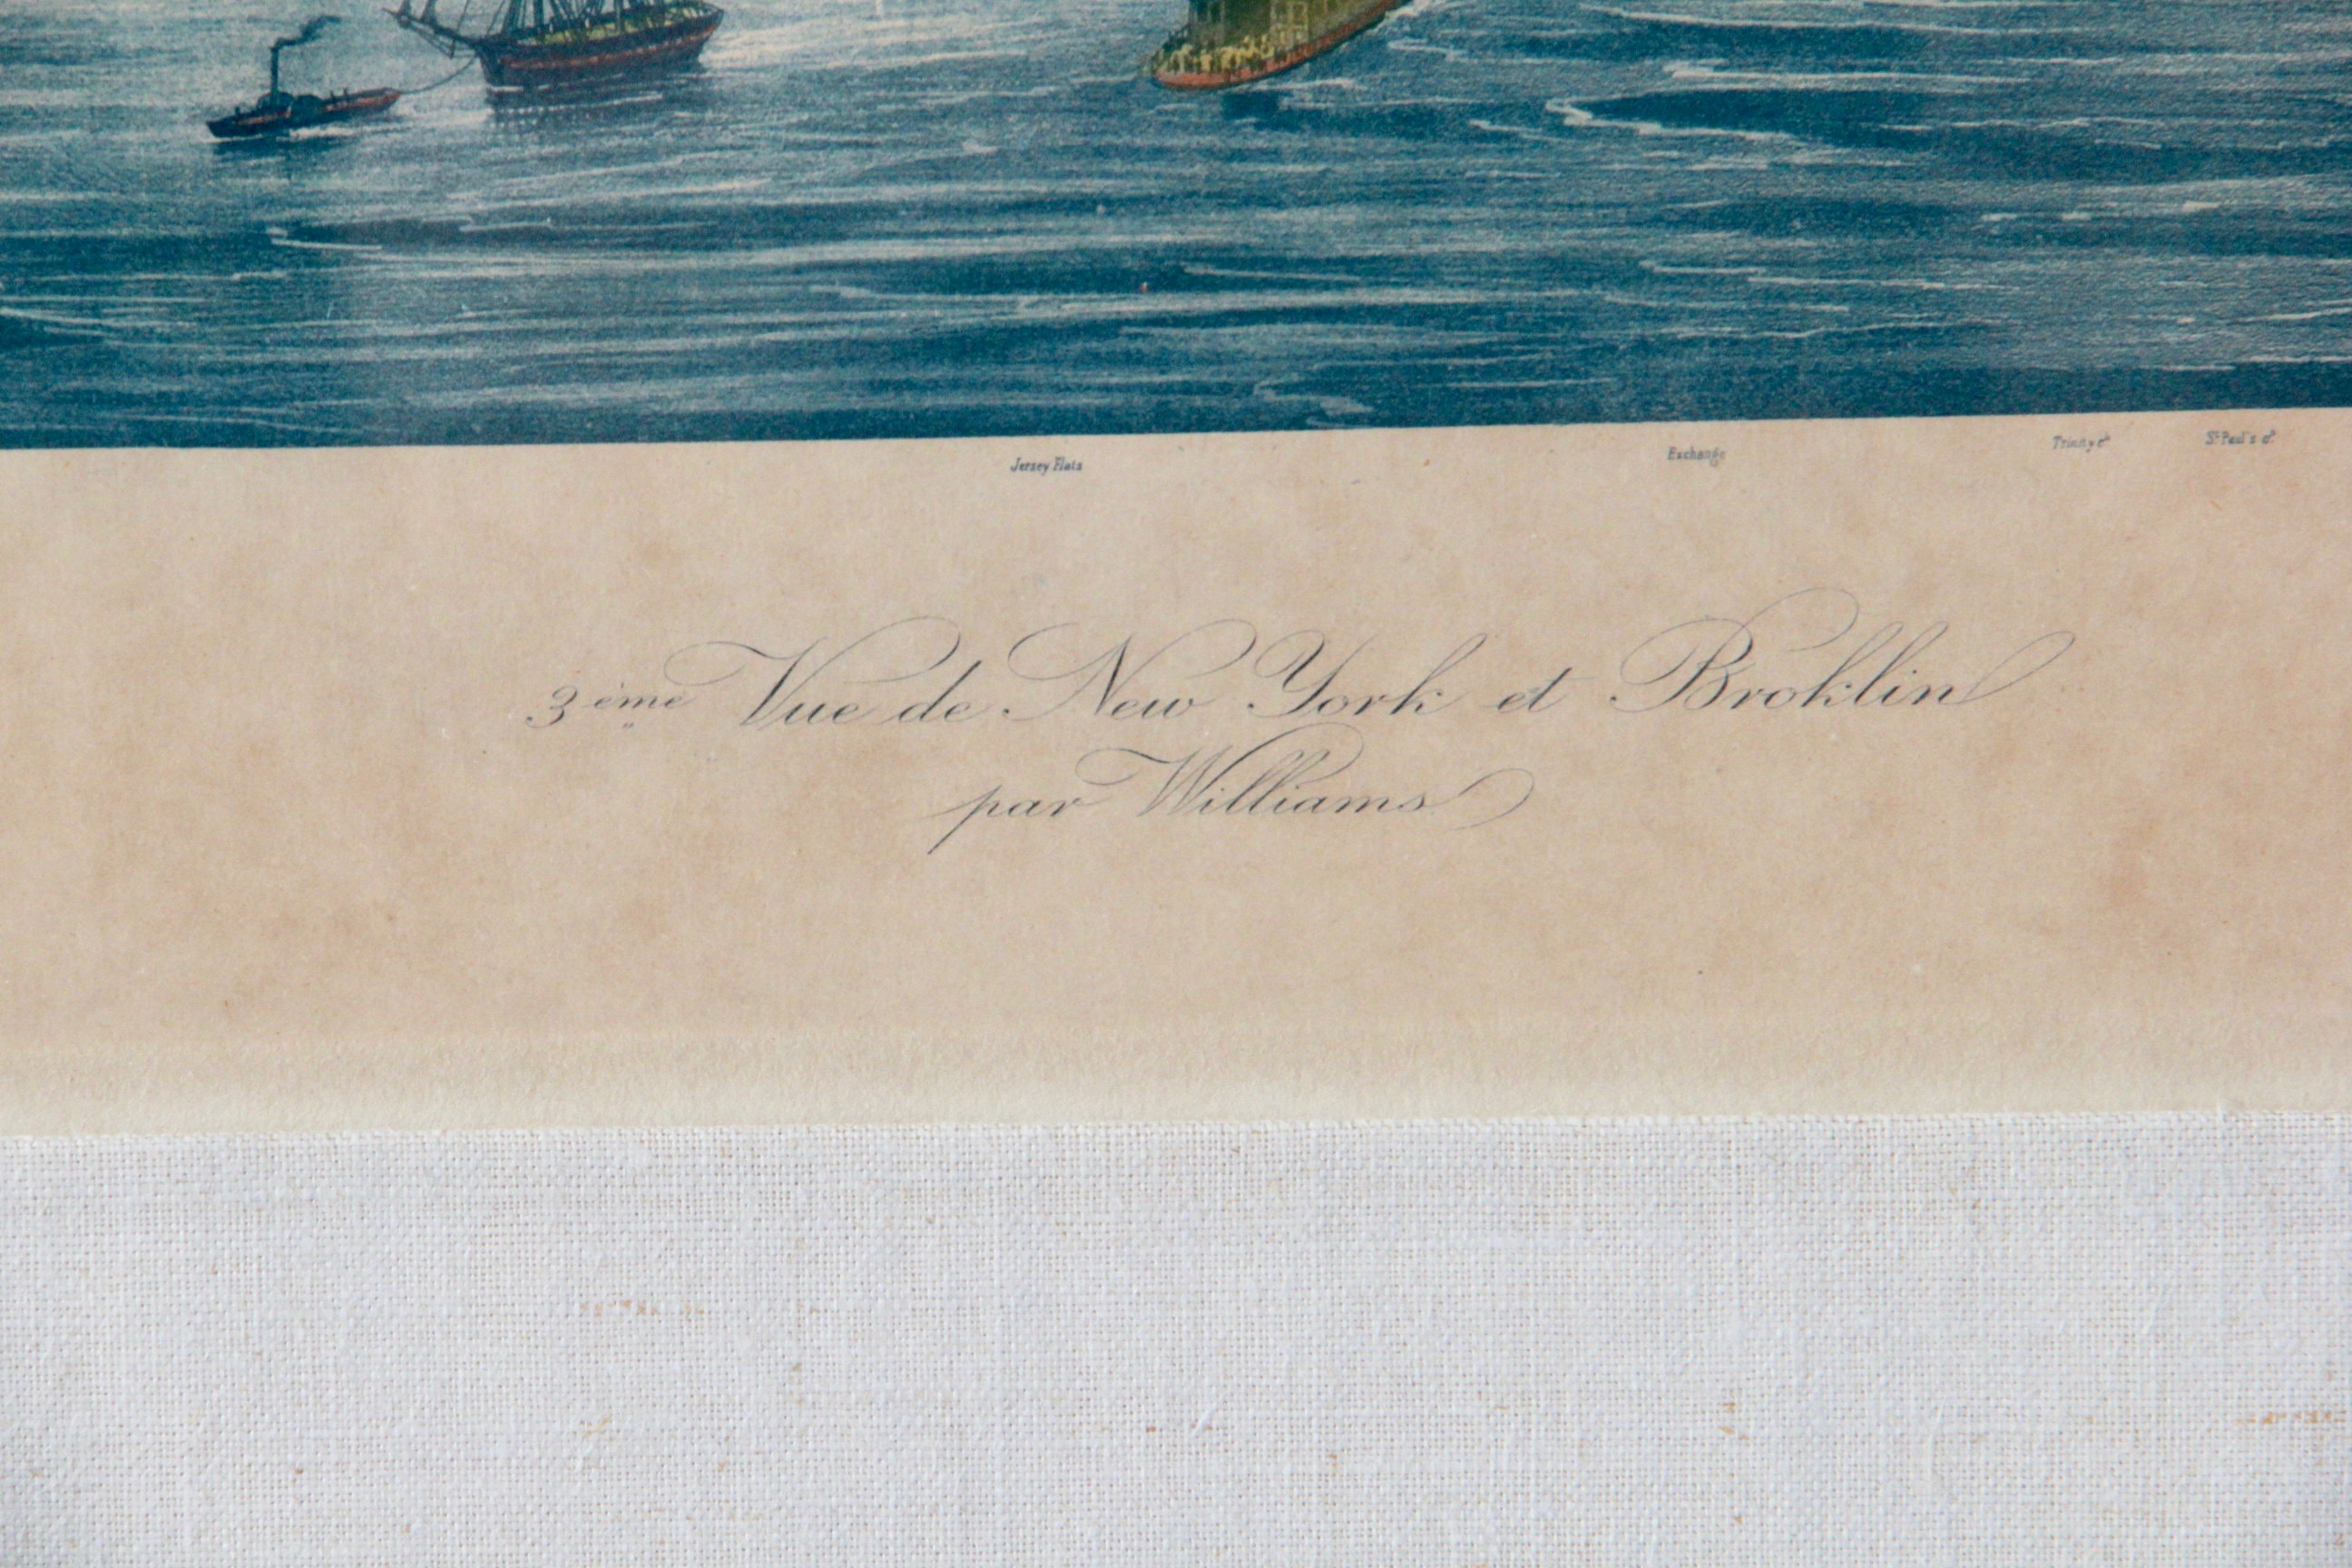 Jersey Flats Exchange Trinity Ch St Paul's Ch
3ème Vue de New York et Broklin
par Williams